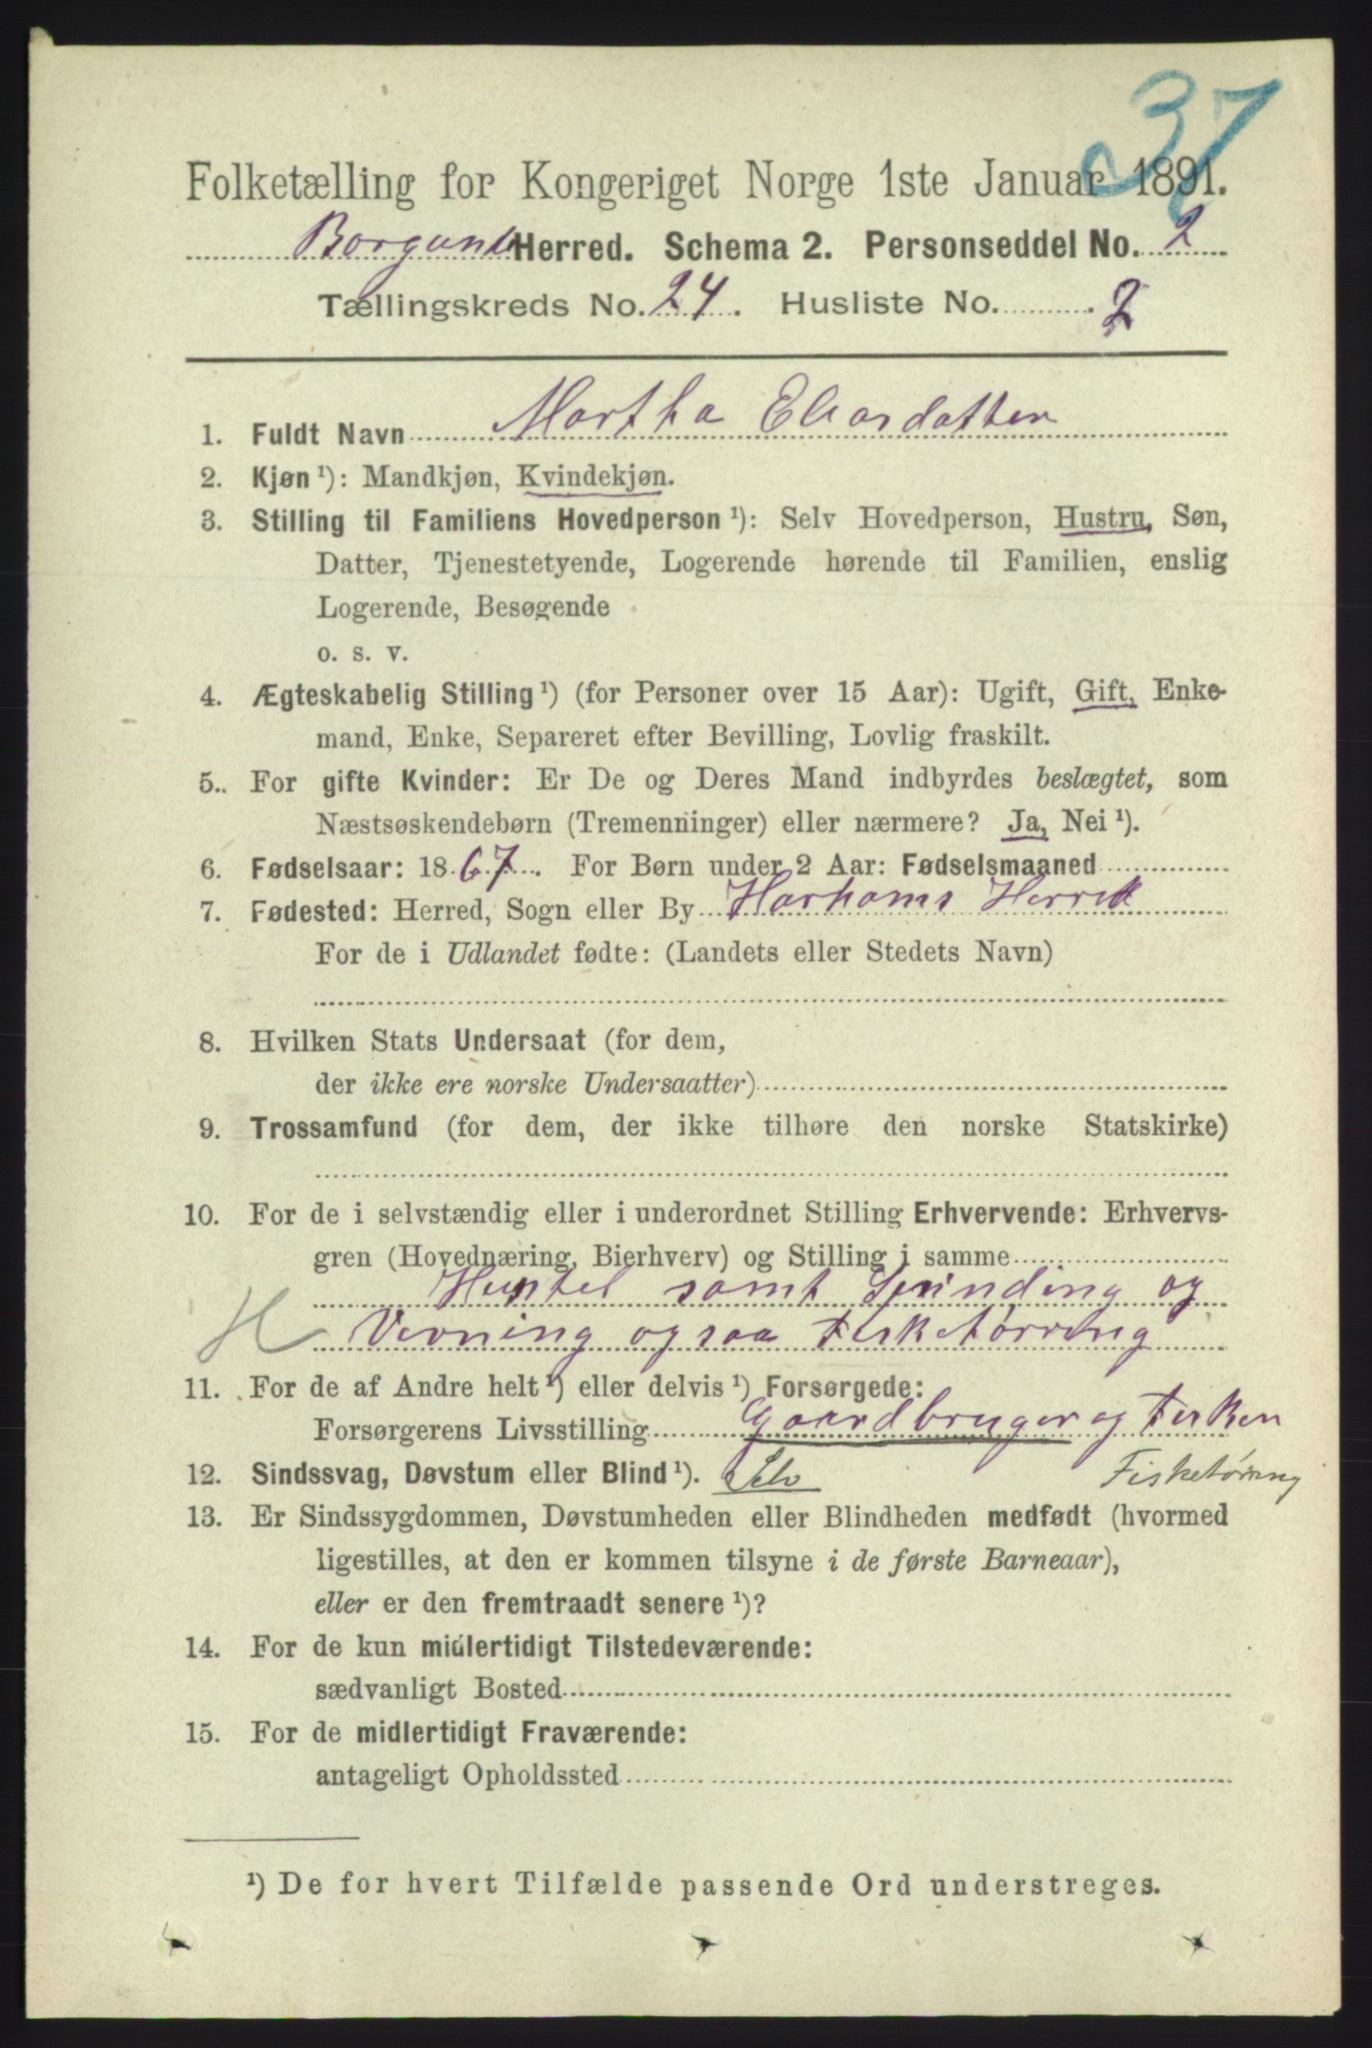 37
Folketælling for Kongeriget Norge 1ste Januar 1891.
Borgund Herred. Schema 2. Personseddel No. 2
Tællingskreds No. 24. Husliste No. 2
1. Fuldt Navn Martha Eliasdatter
2. Kjøn ¹): Mandkjøn, Kvindekjøn.
3. Stilling til Familiens Hovedperson ¹): Selv Hovedperson, Hustru, Søn,
Datter, Tjenestetyende, Logerende hørende til Familien, enslig
Logerende, Besøgende
o. s. v.
4. Ægteskabelig Stilling ¹) (for Personer over 15 Aar): Ugift, Gift, Enke-
mand, Enke, Separeret efter Bevilling, Lovlig fraskilt.
5. For gifte Kvinder: Er De og Deres Mand indbyrdes beslægtet, som
Næstsøskendebørn (Tremenninger) eller nærmere? Ja, Nei ¹).
6. Fødselsaar: 1867. For Børn under 2 Aar: Fødselsmaaned
7. Fødested: Herred, Sogn eller By Harhams Herred
For de i Udlandet fødte: (Landets eller Stedets Navn)
8. Hvilken Stats Undersaat (for dem,
der ikke ere norske Undersaatter)
9. Trossamfund (for dem, der ikke tilhøre den norske Statskirke)
10. For de i selvstændig eller i underordnet Stilling Erhvervende: Erhvervs-
gren (Hovednæring, Bierhverv) og Stilling i samme
Husstel samt Spinding og
H Vevning ogsaa Fisketørring
11. For de af Andre helt ¹) eller delvis ¹) Forsørgede:
Forsørgerens Livsstilling Gaardbruger og Fisker
12. Sindssvag, Døvstum eller Blind ¹). Selv Fisketørring
13. Er Sindssygdommen, Døvstumheden eller Blindheden medfødt (hvormed
ligestilles, at den er kommen tilsyne i de første Barneaar),
eller er den fremtraadt senere ¹)?
14. For de kun midlertidigt Tilstedeværende:
sædvanligt Bosted
15. For de midlertidigt Fraværende:
antageligt Opholdssted
¹) De for hvert Tilfælde passende Ord understreges.